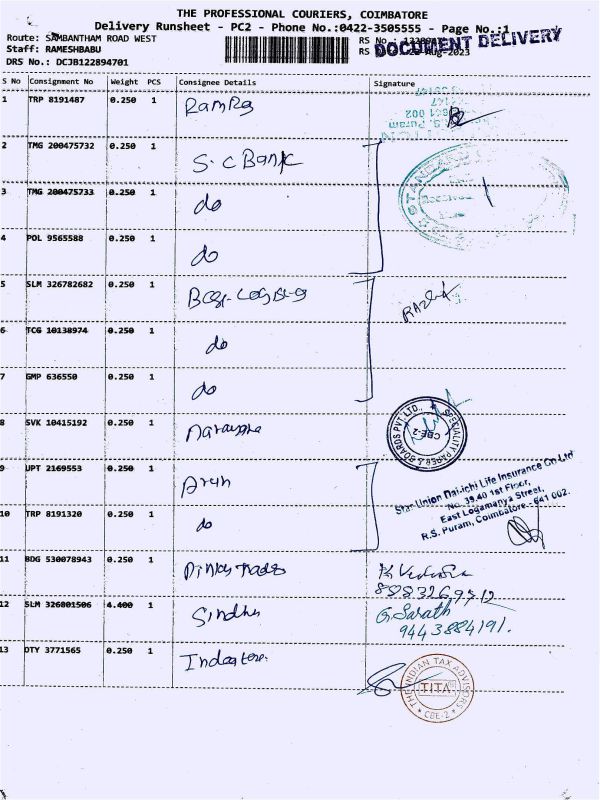 THE PROFESSIONAL COURIERS, COIMBATORE
Delivery Runsheet - PC2 - Phone No.:0422-3505555 - Page No.:1
Route: SAMBANTHAM ROAD WEST
RS No.:
DOCUMENT DELIVERY
Staff: RAMESHBABU
RS Aug-2023
DRS No.: DCJB122894701
S No Consignment No Weight PCS Consignee Details Signature
1 TRP 8191487 0.250 1
641 002
R.S. Puram
2 TMG 200475732 0.250 1 S.C Bank
STANDARD
3 TMG 200475733 0.250 1 do
4 POL 9565588 0.250 1 do
5 SLM 326782682 0.250 1
6 TCG 10138974 0.250 1 do
7 GMP 636550 0.250 1 do
8 SVK 10415192 0.250 1
SPECIALITY PAPER & BOARDS PVT LTD.,
CBE-2
9 UPT 2169553 0.250 1 Arun
Star Union Dai-ichi Life Insurance Co Ltd
No. 39,40 1st Floor,
East Logamanya Street,
R.S. Puram, Coimbatore - 641 002.
10 TRP 8191320 0.250 1 do
11 BDG 530078943 0.250 1
12 SLM 326801506 4.400 1 Sindhu
G. Sarath
9443884191.
13 DTY 3771565 0.250 1
THE INDIAN TAX ADVISORS
TITA
CBE-2